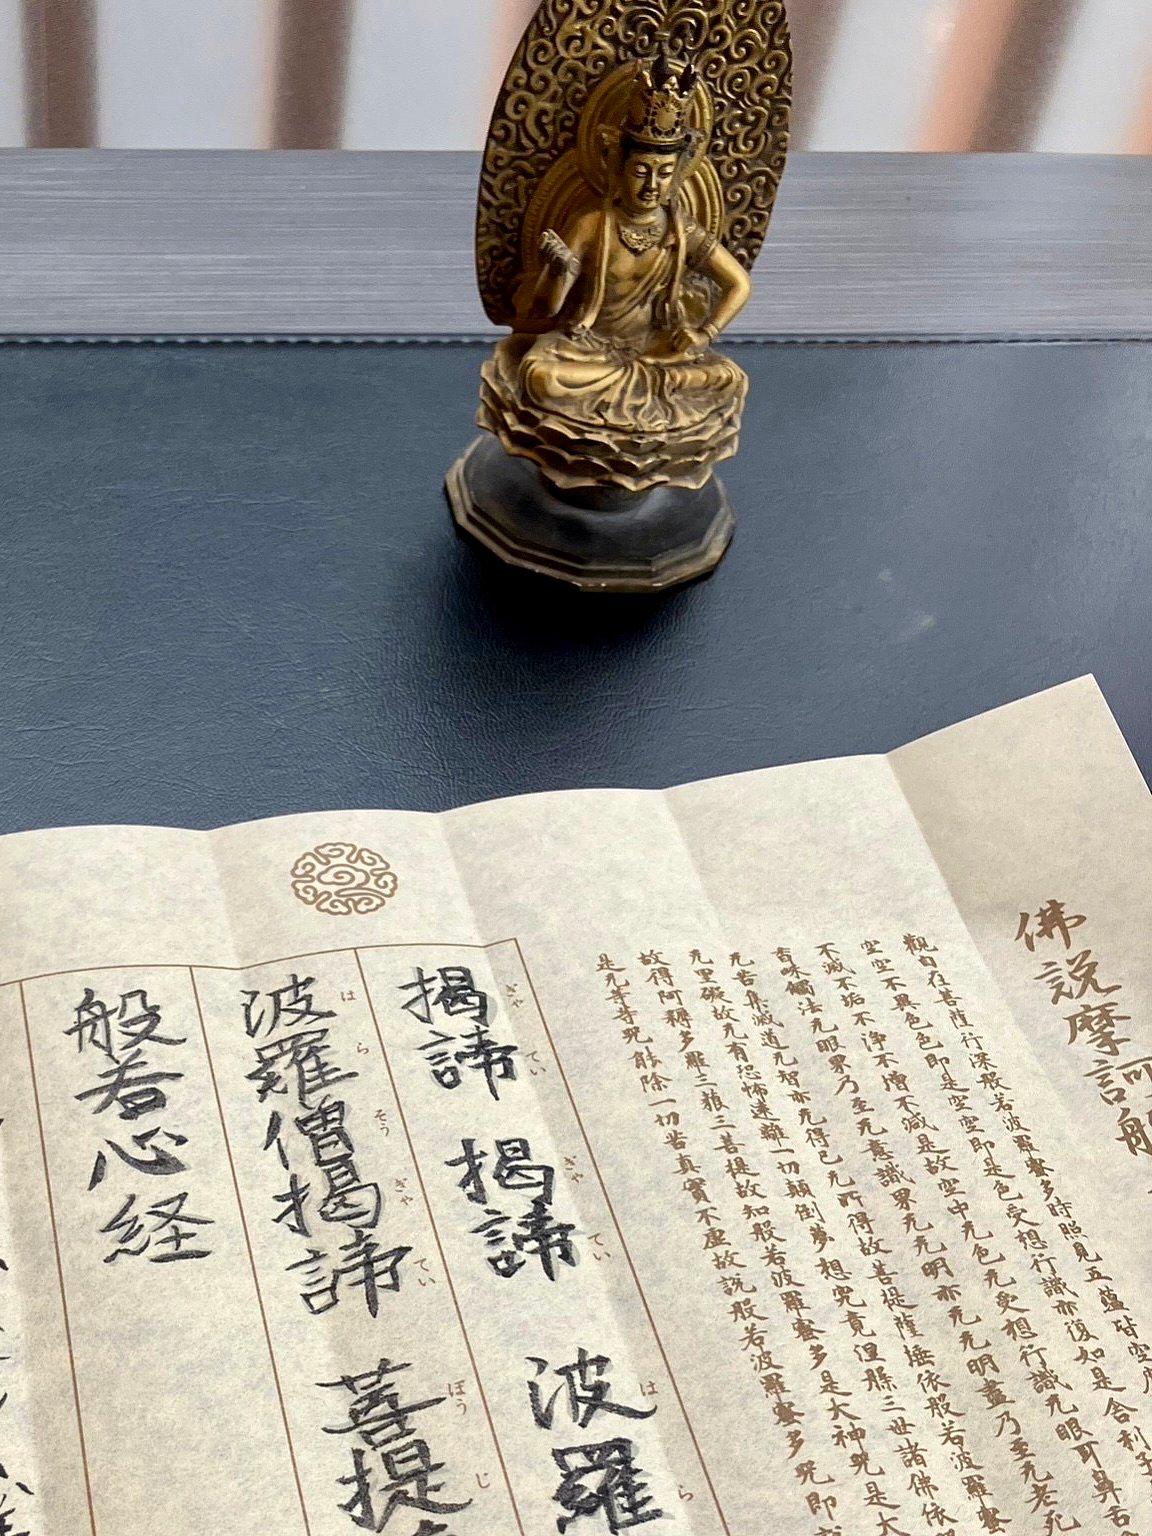 佛説摩訶般
觀自在菩薩行深般若波羅蜜多時照見五蘊皆空度
空空不異色色即是空空即是色受想行識亦復如是舍利子
不滅不垢不淨不增不減是故空中无色无受想行識无眼耳鼻舌
香味觸法无眼界乃至无意識界无无明亦无无明盡乃至无老死
无苦集滅道无智亦无得已无所得故菩提薩埵依般若波羅蜜
无罣礙故无有恐怖遠離一切顛倒夢想究竟涅槃三世諸佛依
故得阿耨多羅三藐三菩提故知般若波羅蜜多是大神咒是大
是无等等咒能除一切苦真實不虛故說般若波羅蜜多咒即
ぎゃ てい ぎゃ てい は ら
揭諦 揭諦 波羅
は ら そう ぎゃ てい ぼう じ
波羅僧揭諦 菩提
般若心経